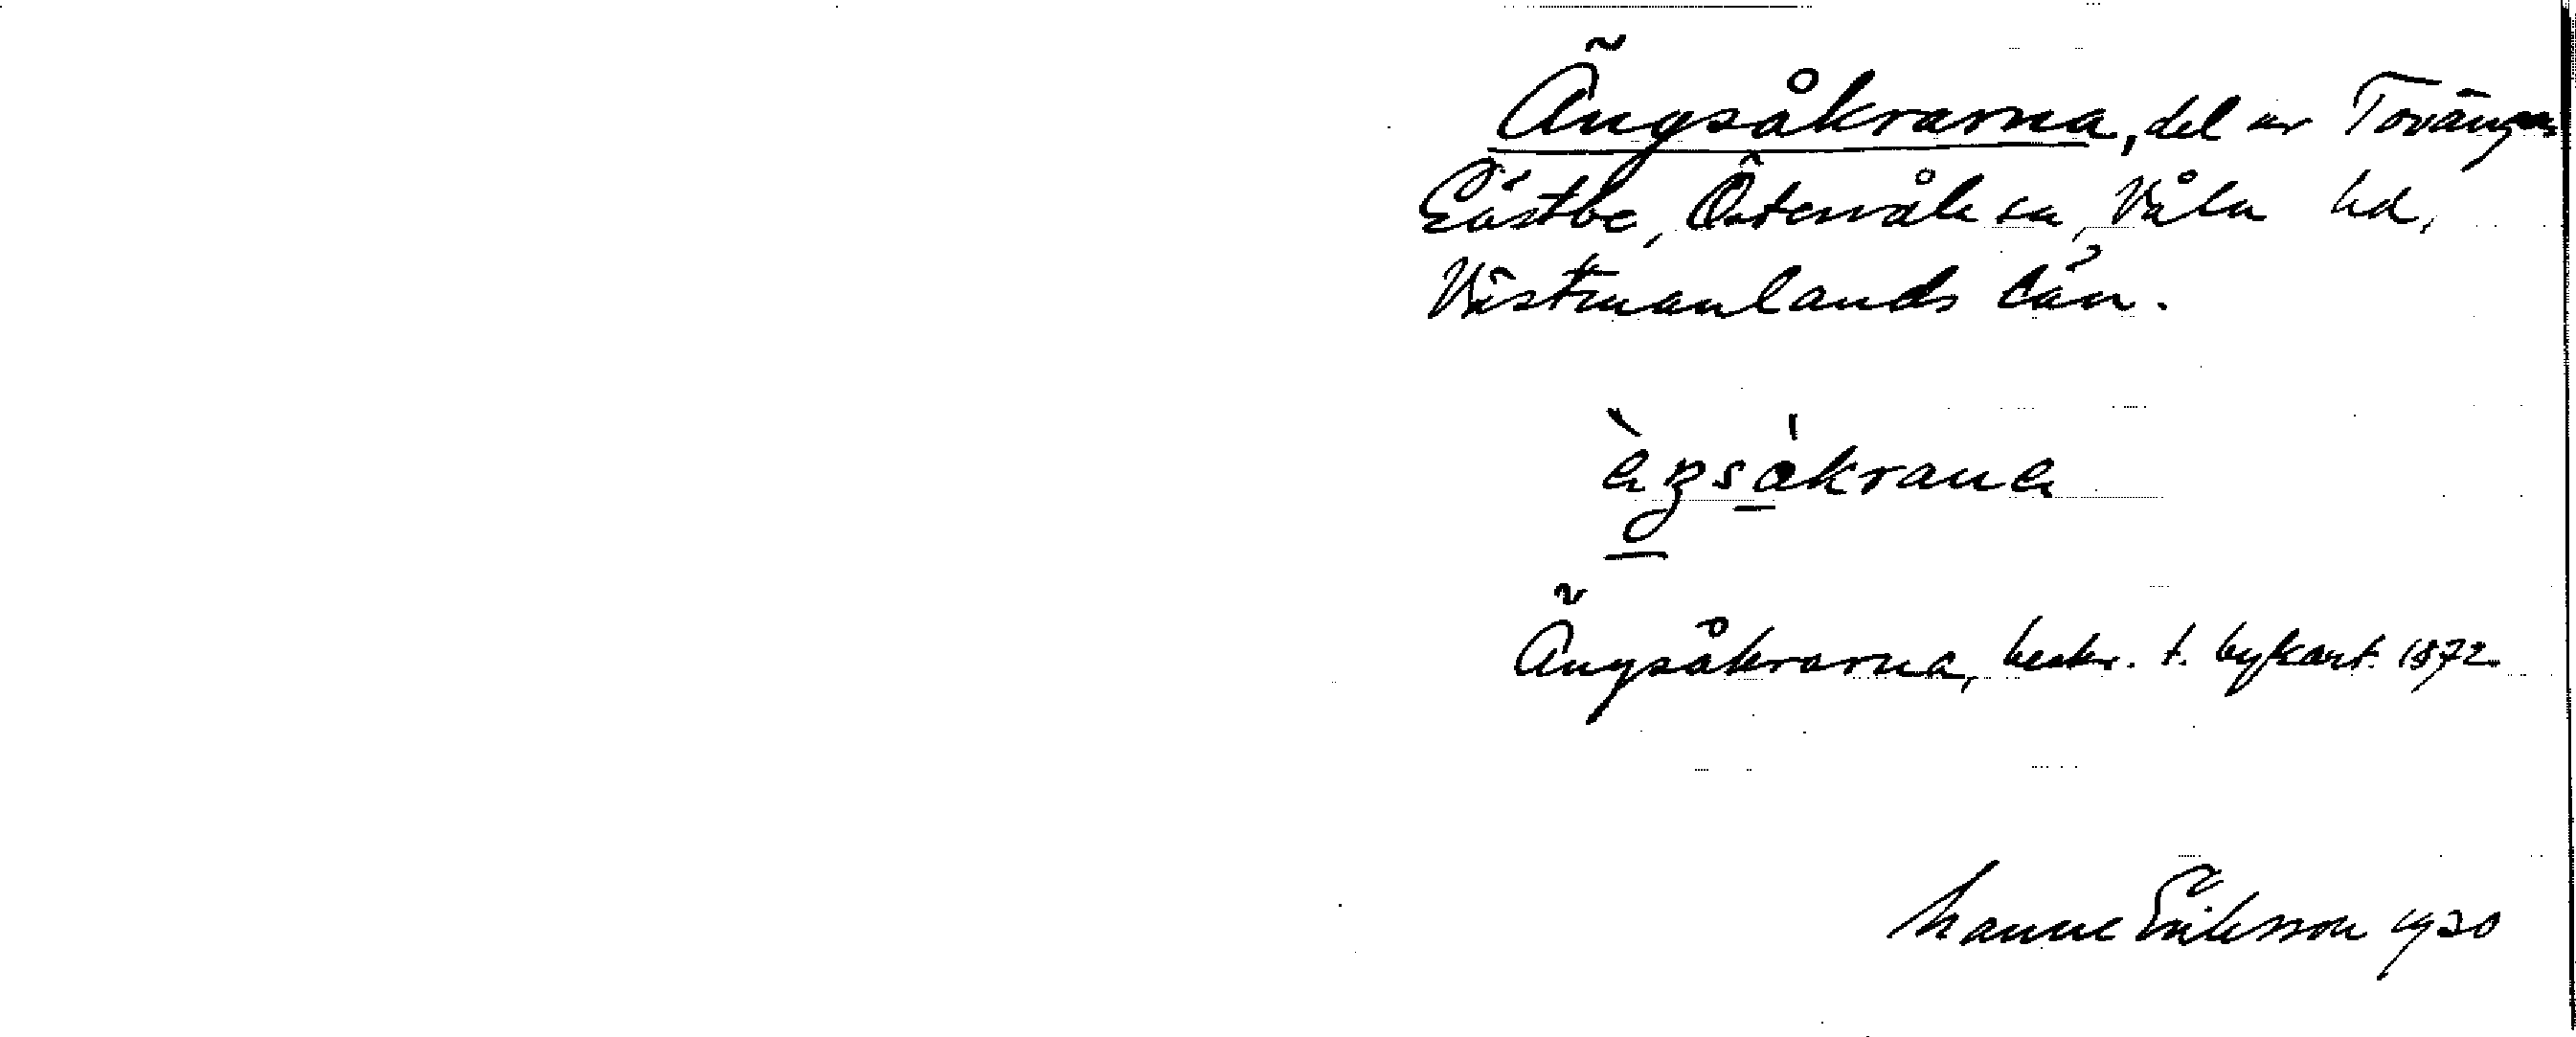 Ängsåkrarna, del av Torängen
Gåstbo, Östervåla sn, Våla hd,
Västmanlands län.
Ängsåkrarna, beskr. t. bykart. 1872.
Manne Eriksson 1930